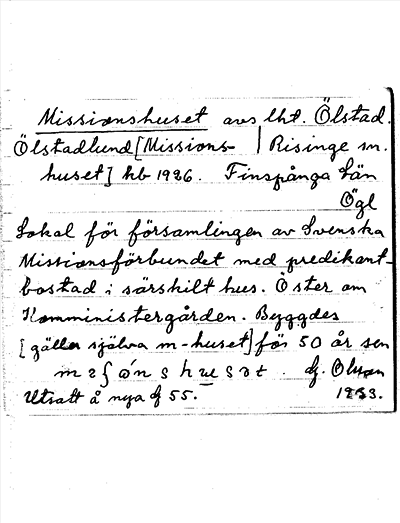 Missionshuset avs lht. Ölstad.
Ölstadlund [Missions- | Risinge sn.
huset] hb 1926. Finspånga län
Ögl
Lokal för församlingen av Svenska
Missionsförbundet med predikant-
bostad i särskilt hus. Öster om
Komministergården. Byggdes
[gäller själva m-huset] för 50 år sen
dj. Olsson
Utsatt å nya dj 55. 1933.